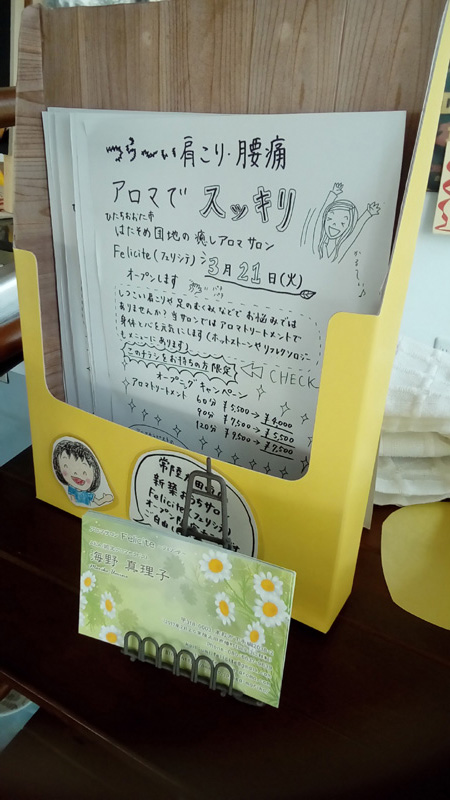 肩こり・腰痛
アロマで スッキリ
かるーい♪
ひたちおおた市
はたそめ団地の癒しアロマサロン
Felicite(フェリシテ)
3月21日(火)
オープンします
しつこい肩こりや足のむくみなどで お悩みでは
ありませんか？当サロンではアロマトリートメントで
身体と心を元気にします(ホットストーンやリフレクソロジー
もメニューにあります)
このチラシをお持ちの方限定 CHECK
オープニングキャンペーン
アロマトリートメント 60分 ¥5,500→¥4,000
90分 ¥7,500→¥5,500
120分 ¥9,500→¥7,500
常陸
新築おうちサロ
Felicite フェリシ
海野 真理子